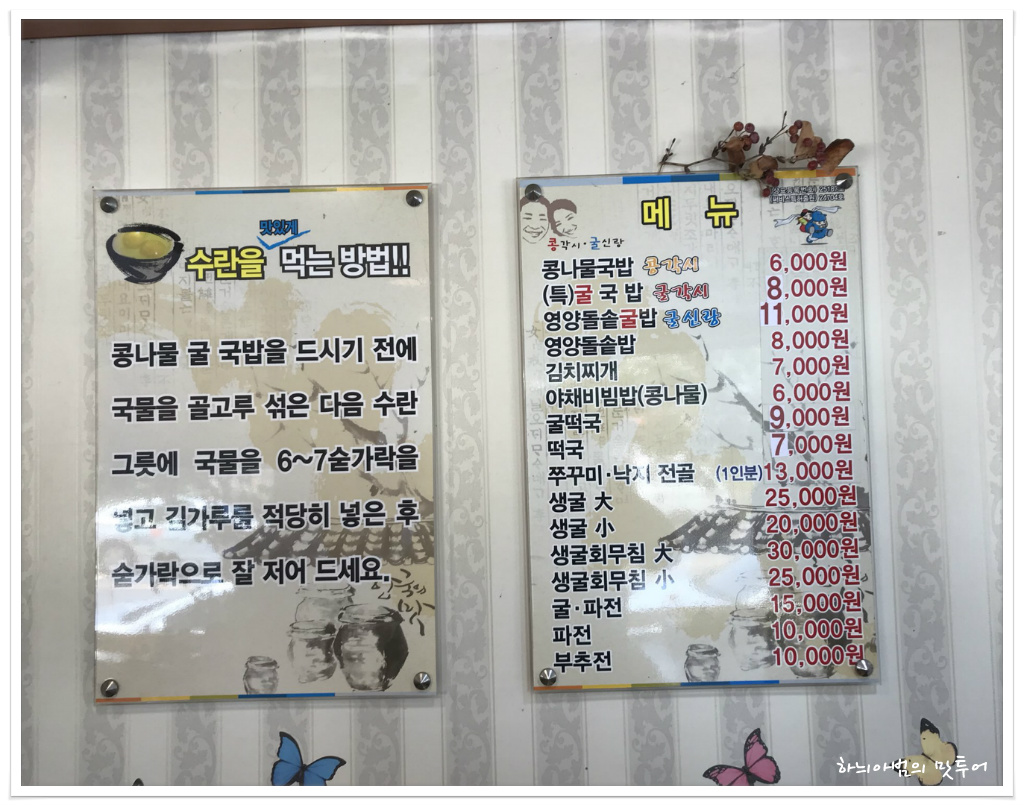 맛있게
수란을 먹는 방법!!
콩나물 굴 국밥을 드시기 전에
국물을 골고루 섞은 다음 수란
그릇에 국물을 6~7숟가락을
넣고 김가루를 적당히 넣은 후
숟가락으로 잘 저어 드세요.
메뉴
콩각시·굴신랑
콩나물국밥 콩각시 6,000원
(특)굴국밥 굴각시 8,000원
영양돌솥굴밥 굴신랑 11,000원
영양돌솥밥 8,000원
김치찌개 7,000원
야채비빔밥(콩나물) 6,000원
굴떡국 9,000원
떡국 7,000원
쭈꾸미·낙지 전골 (1인분)13,000원
생굴 大 25,000원
생굴 小 20,000원
생굴회무침 大 30,000원
생굴회무침 小 25,000원
굴·파전 15,000원
파전 10,000원
부추전 10,000원
하늬아범의 맛투어